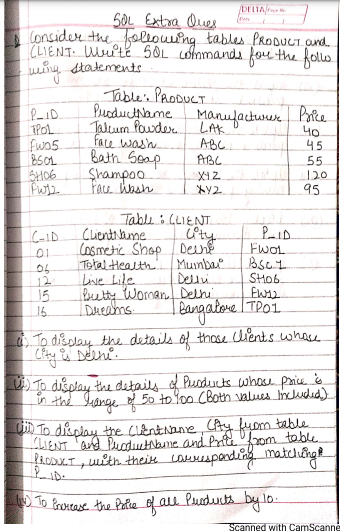 SQL Extra Ques
DELTA
Date
Consider the following tables PRODUCT and
CLIENT. Write SQL commands for the follo
wing statements
Table: PRODUCT
P_ID ProductName Manufacturer Price
TP01 Talcum Powder LAK 40
FW05 Face Wash ABC 45
BS01 Bath Soap ABC 55
SH06 Shampoo XYZ 120
FW12 Face Wash XYZ 95
Table: CLIENT
C-ID ClientName City P_ID
01 Cosmetic Shop Delhi FW01
06 Total Health Mumbai BSC1
12 Live Life Delhi SH06
15 Pretty Woman Delhi FW12
16 Dreams Bangalore TP01
(i) To display the details of those clients whose
City is Delhi.
(ii) To display the details of Products whose price is
in the range of 50 to 100 (Both values Included)
(iii) To display the ClientName City from table
CLIENT and ProductName and Price from table
PRODUCT, with their corresponding matching
P_ID.
(iv) To Increase the Price of all Products by 10.
Scanned with CamScanne